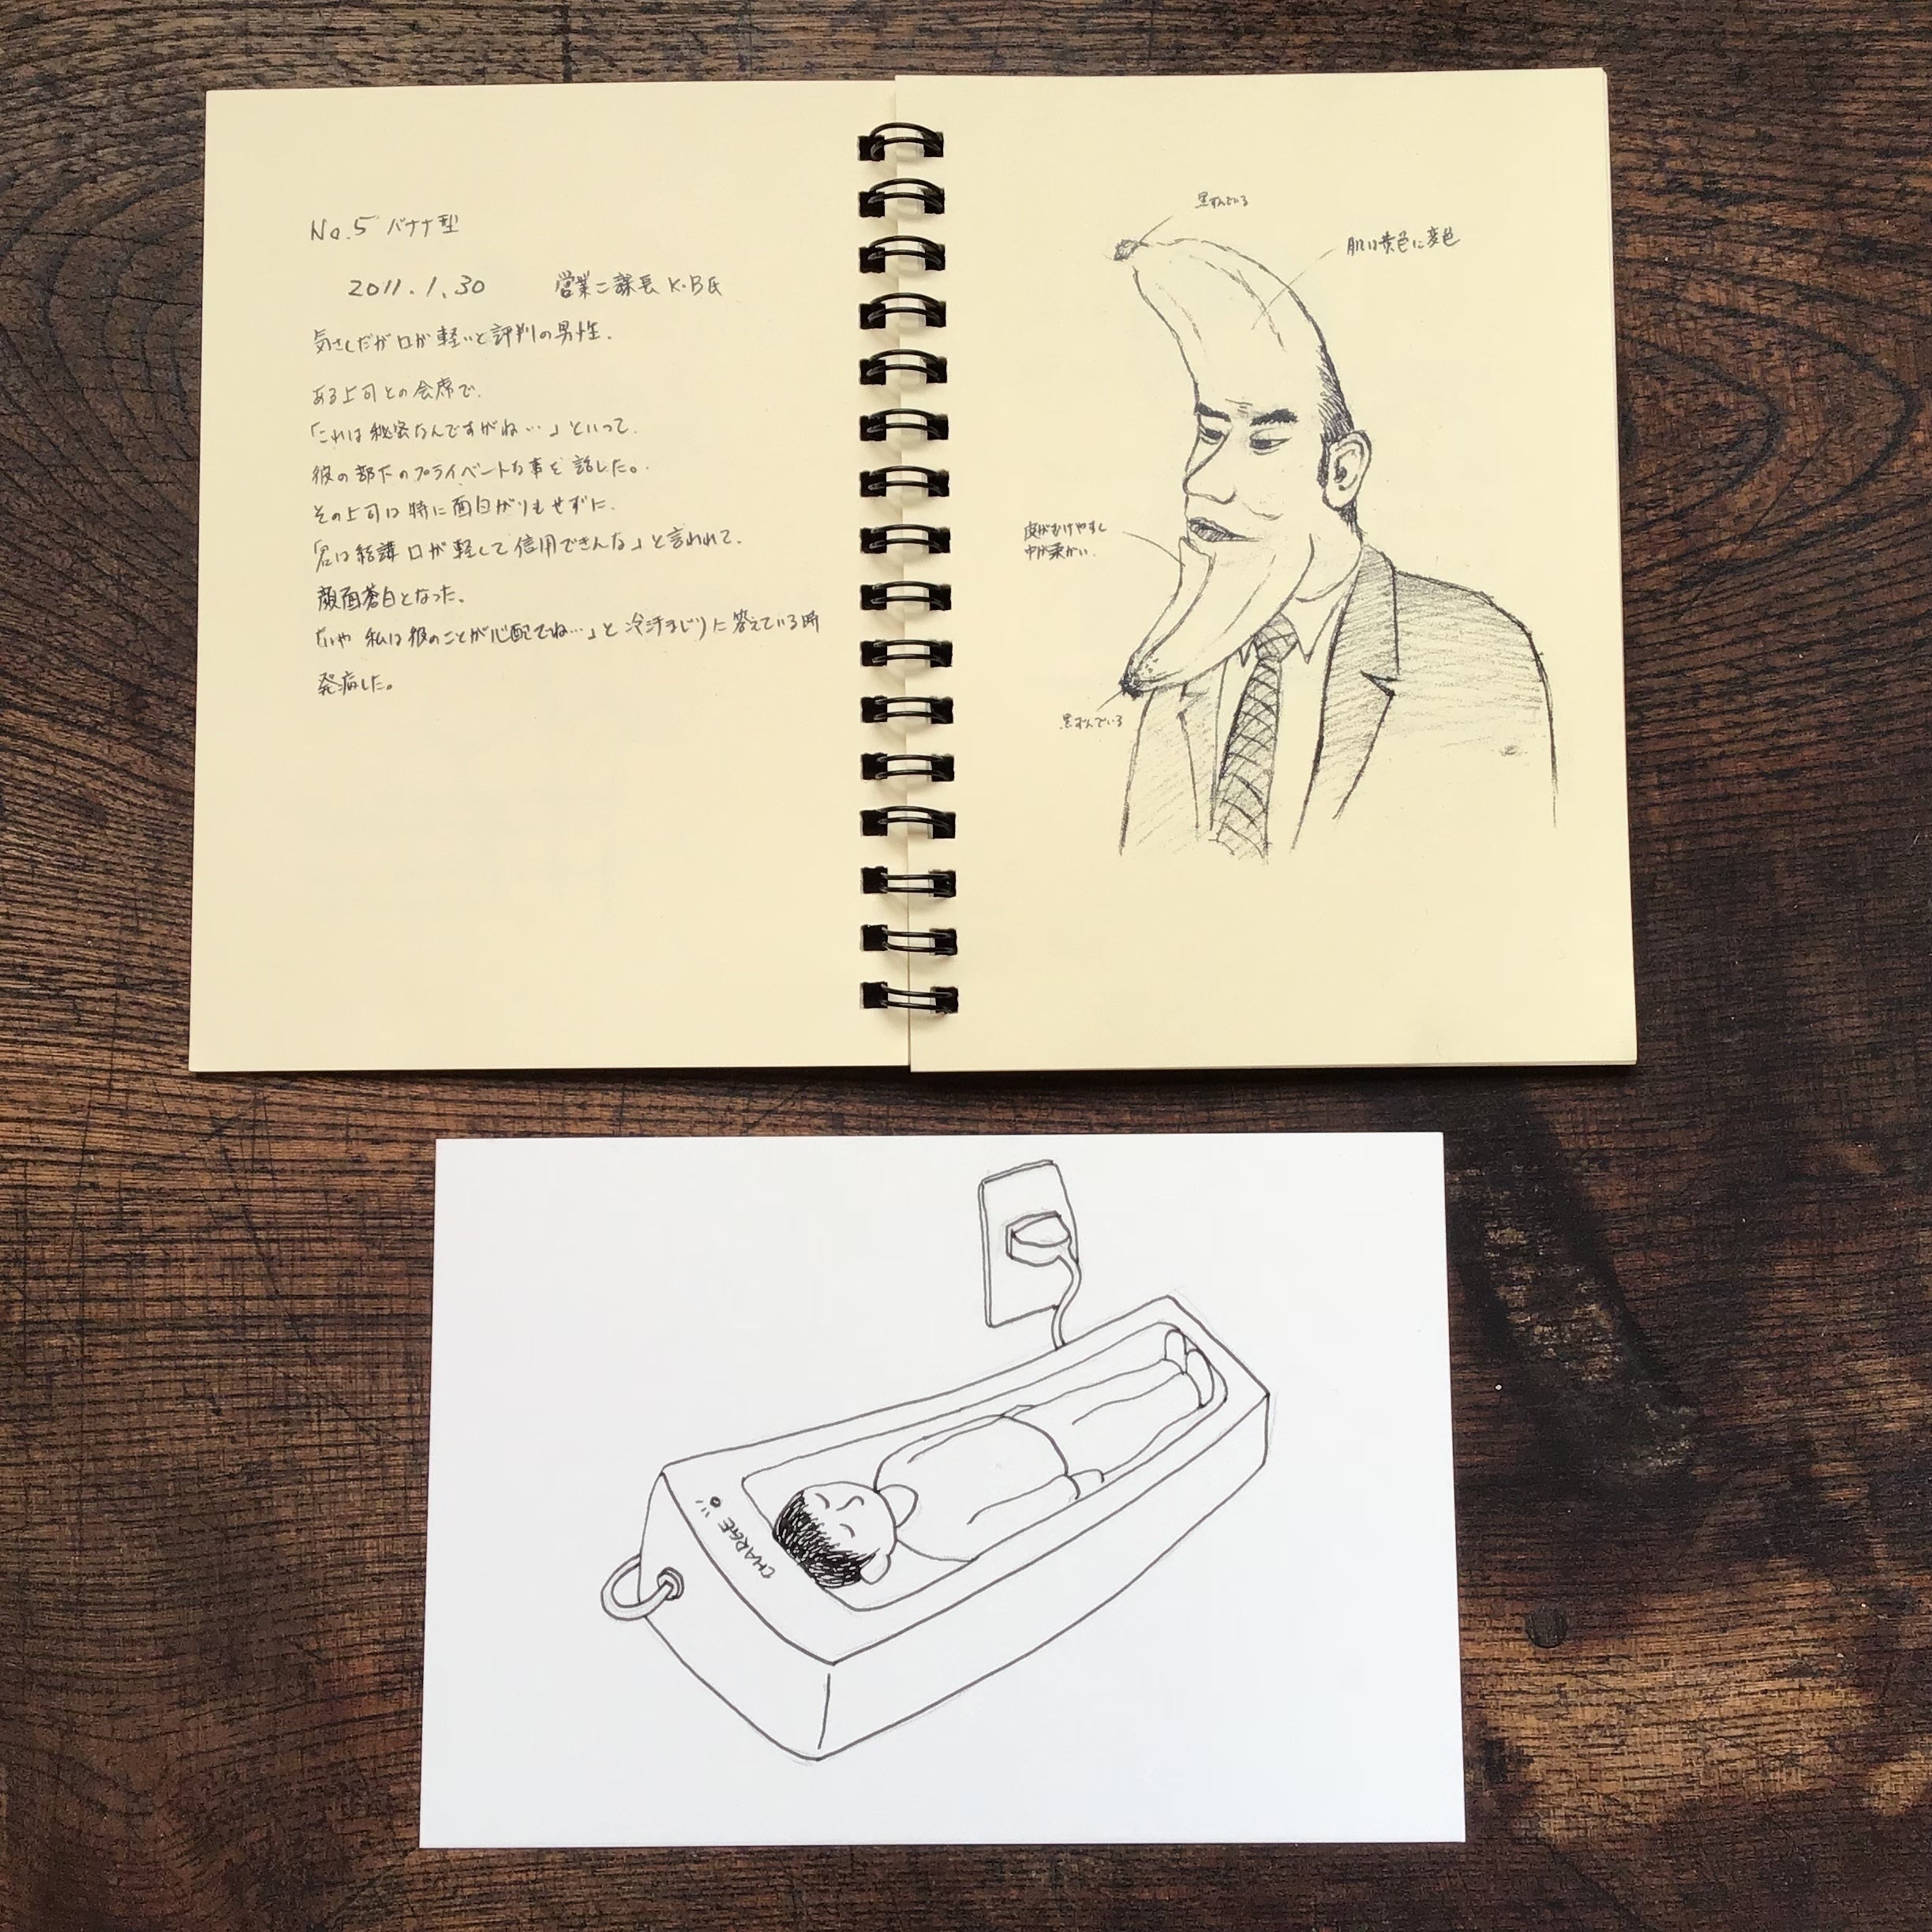 No.5 バナナ型
2011.1.30 営業二課長 K・B氏
気さくだが口が軽いと評判の男性.
ある上司との会席で.
「これは秘密なんですがね…」といって.
彼の部下のプライベートな事を話した。
その上司は特に面白がりもせずに.
「君は結構口が軽くて信用できんな」と言われて.
顔面蒼白となった。
「いや 私は彼のことが心配でね…」と冷汗まじりに答えている時
発病した。
黒ずんでいる
肌は黄色に変色
皮がむけやすく
中が柔かい.
黒ずんでいる
CHARGE